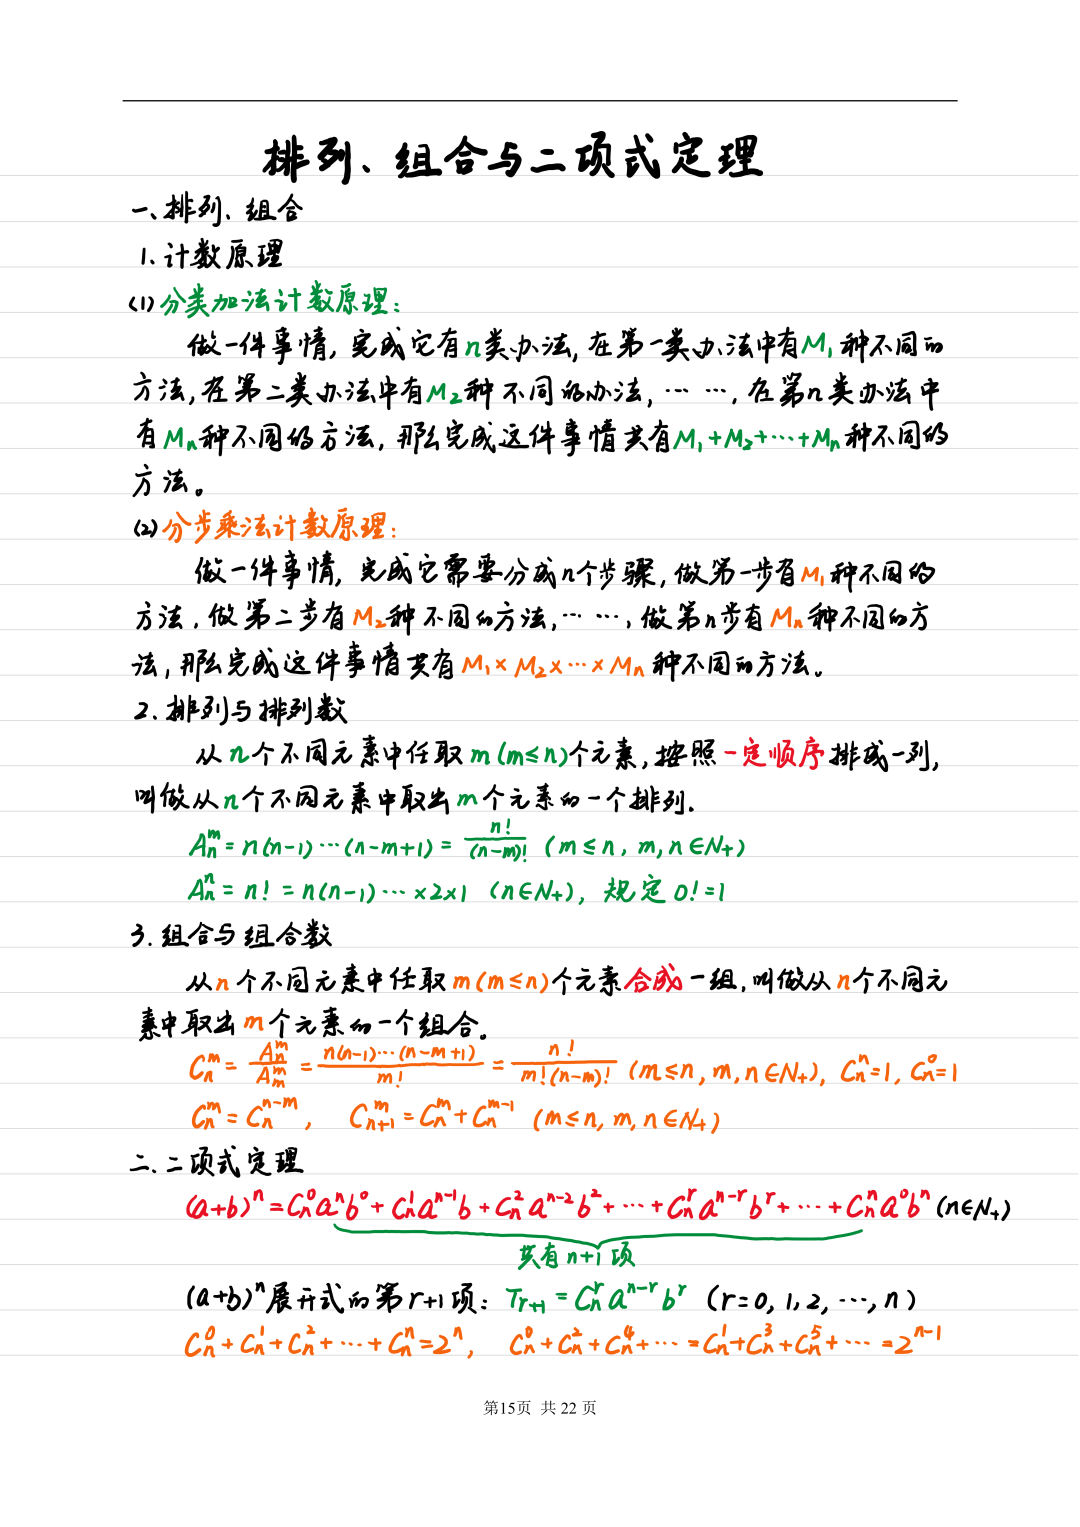 排列、组合与二项式定理
一、排列、组合
1.计数原理
(1)分类加法计数原理:
做一件事情,完成它有n类办法,在第一类办法中有M₁种不同的
方法,在第二类办法中有M₂种不同的办法,……,在第n类办法中
有Mₙ种不同的方法,那么完成这件事情共有M₁+M₂+…+Mₙ种不同的
方法。
(2)分步乘法计数原理:
做一件事情,完成它需要分成n个步骤,做第一步有M₁种不同的
方法,做第二步有M₂种不同的方法,……,做第n步有Mₙ种不同的方
法,那么完成这件事情共有M₁×M₂×…×Mₙ种不同的方法。
2.排列与排列数
从n个不同元素中任取m(m≤n)个元素,按照一定顺序排成一列,
叫做从n个不同元素中取出m个元素的一个排列.
Aₙᵐ=n(n-1)…(n-m+1)=n!/(n-m)! (m≤n,m,n∈N₊)
Aₙⁿ=n!=n(n-1)…×2×1 (n∈N₊),规定0!=1
3.组合与组合数
从n个不同元素中任取m(m≤n)个元素合成一组,叫做从n个不同元
素中取出m个元素的一个组合。
Cₙᵐ=Aₙᵐ/Aₘᵐ=n(n-1)…(n-m+1)/m!=n!/m!(n-m)! (m≤n,m,n∈N₊), Cₙⁿ=1, Cₙ⁰=1
Cₙᵐ=Cₙⁿ⁻ᵐ, Cₙ₊₁ᵐ=Cₙᵐ+Cₙᵐ⁻¹ (m≤n,m,n∈N₊)
二.二项式定理
(a+b)ⁿ=Cₙ⁰aⁿb⁰+Cₙ¹aⁿ⁻¹b+Cₙ²aⁿ⁻²b²+…+Cₙʳaⁿ⁻ʳbʳ+…+Cₙⁿa⁰bⁿ(n∈N₊)
共有n+1项
(a+b)ⁿ展开式的第r+1项:Tᵣ₊₁=Cₙʳaⁿ⁻ʳbʳ (r=0,1,2,…,n)
Cₙ⁰+Cₙ¹+Cₙ²+…+Cₙⁿ=2ⁿ, Cₙ⁰+Cₙ²+Cₙ⁴+…=Cₙ¹+Cₙ³+Cₙ⁵+…=2ⁿ⁻¹
第15页 共 22 页